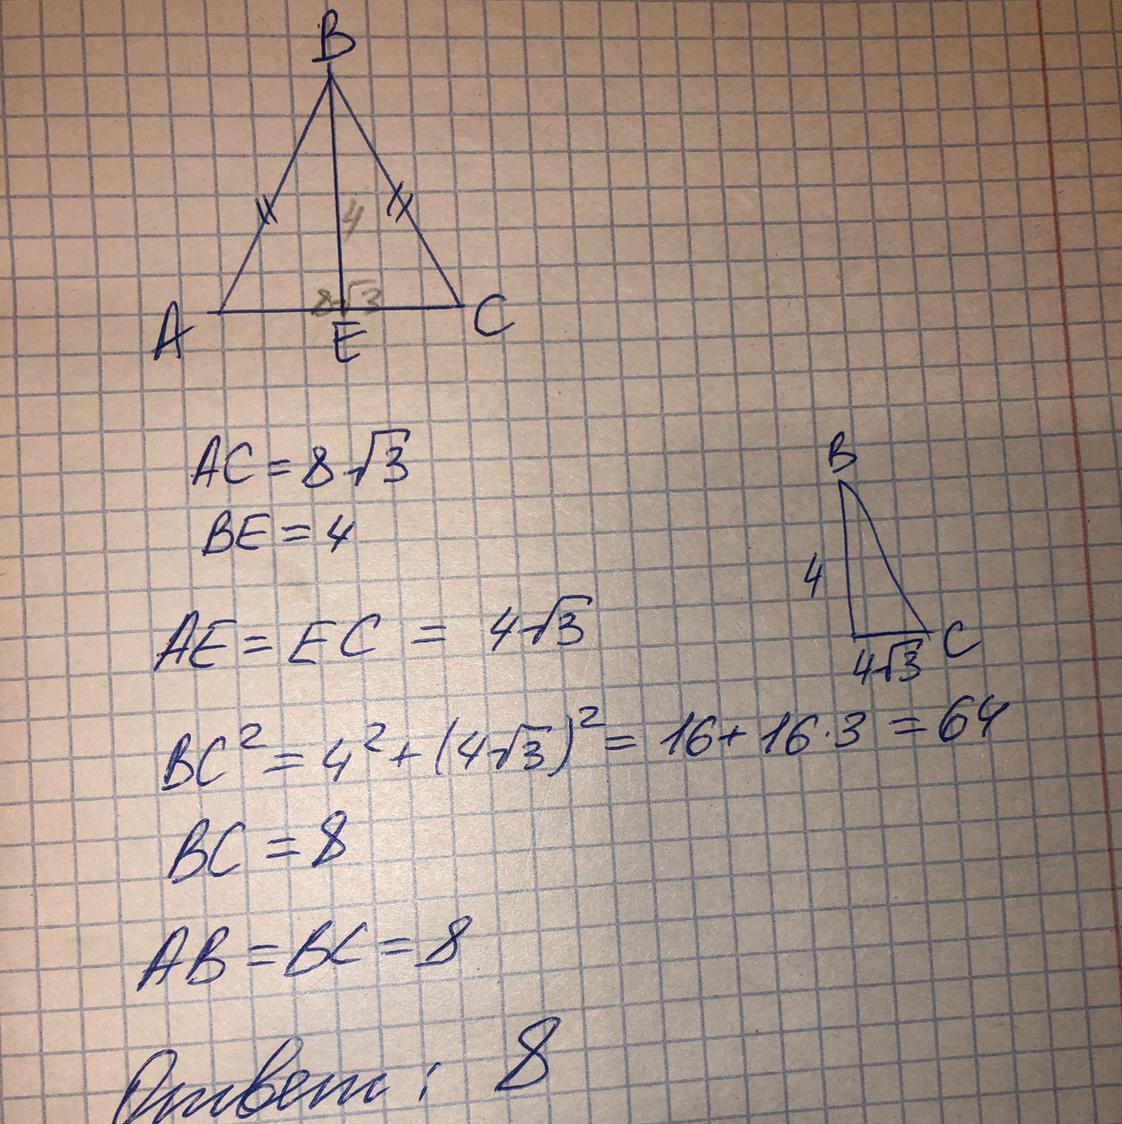 B
4
8√3
A
E
C
AC = 8√3
BE = 4
B
4
4√3
C
AE = EC = 4√3
BC² = 4² + (4√3)² = 16 + 16·3 = 64
BC = 8
AB = BC = 8
Ответ: 8